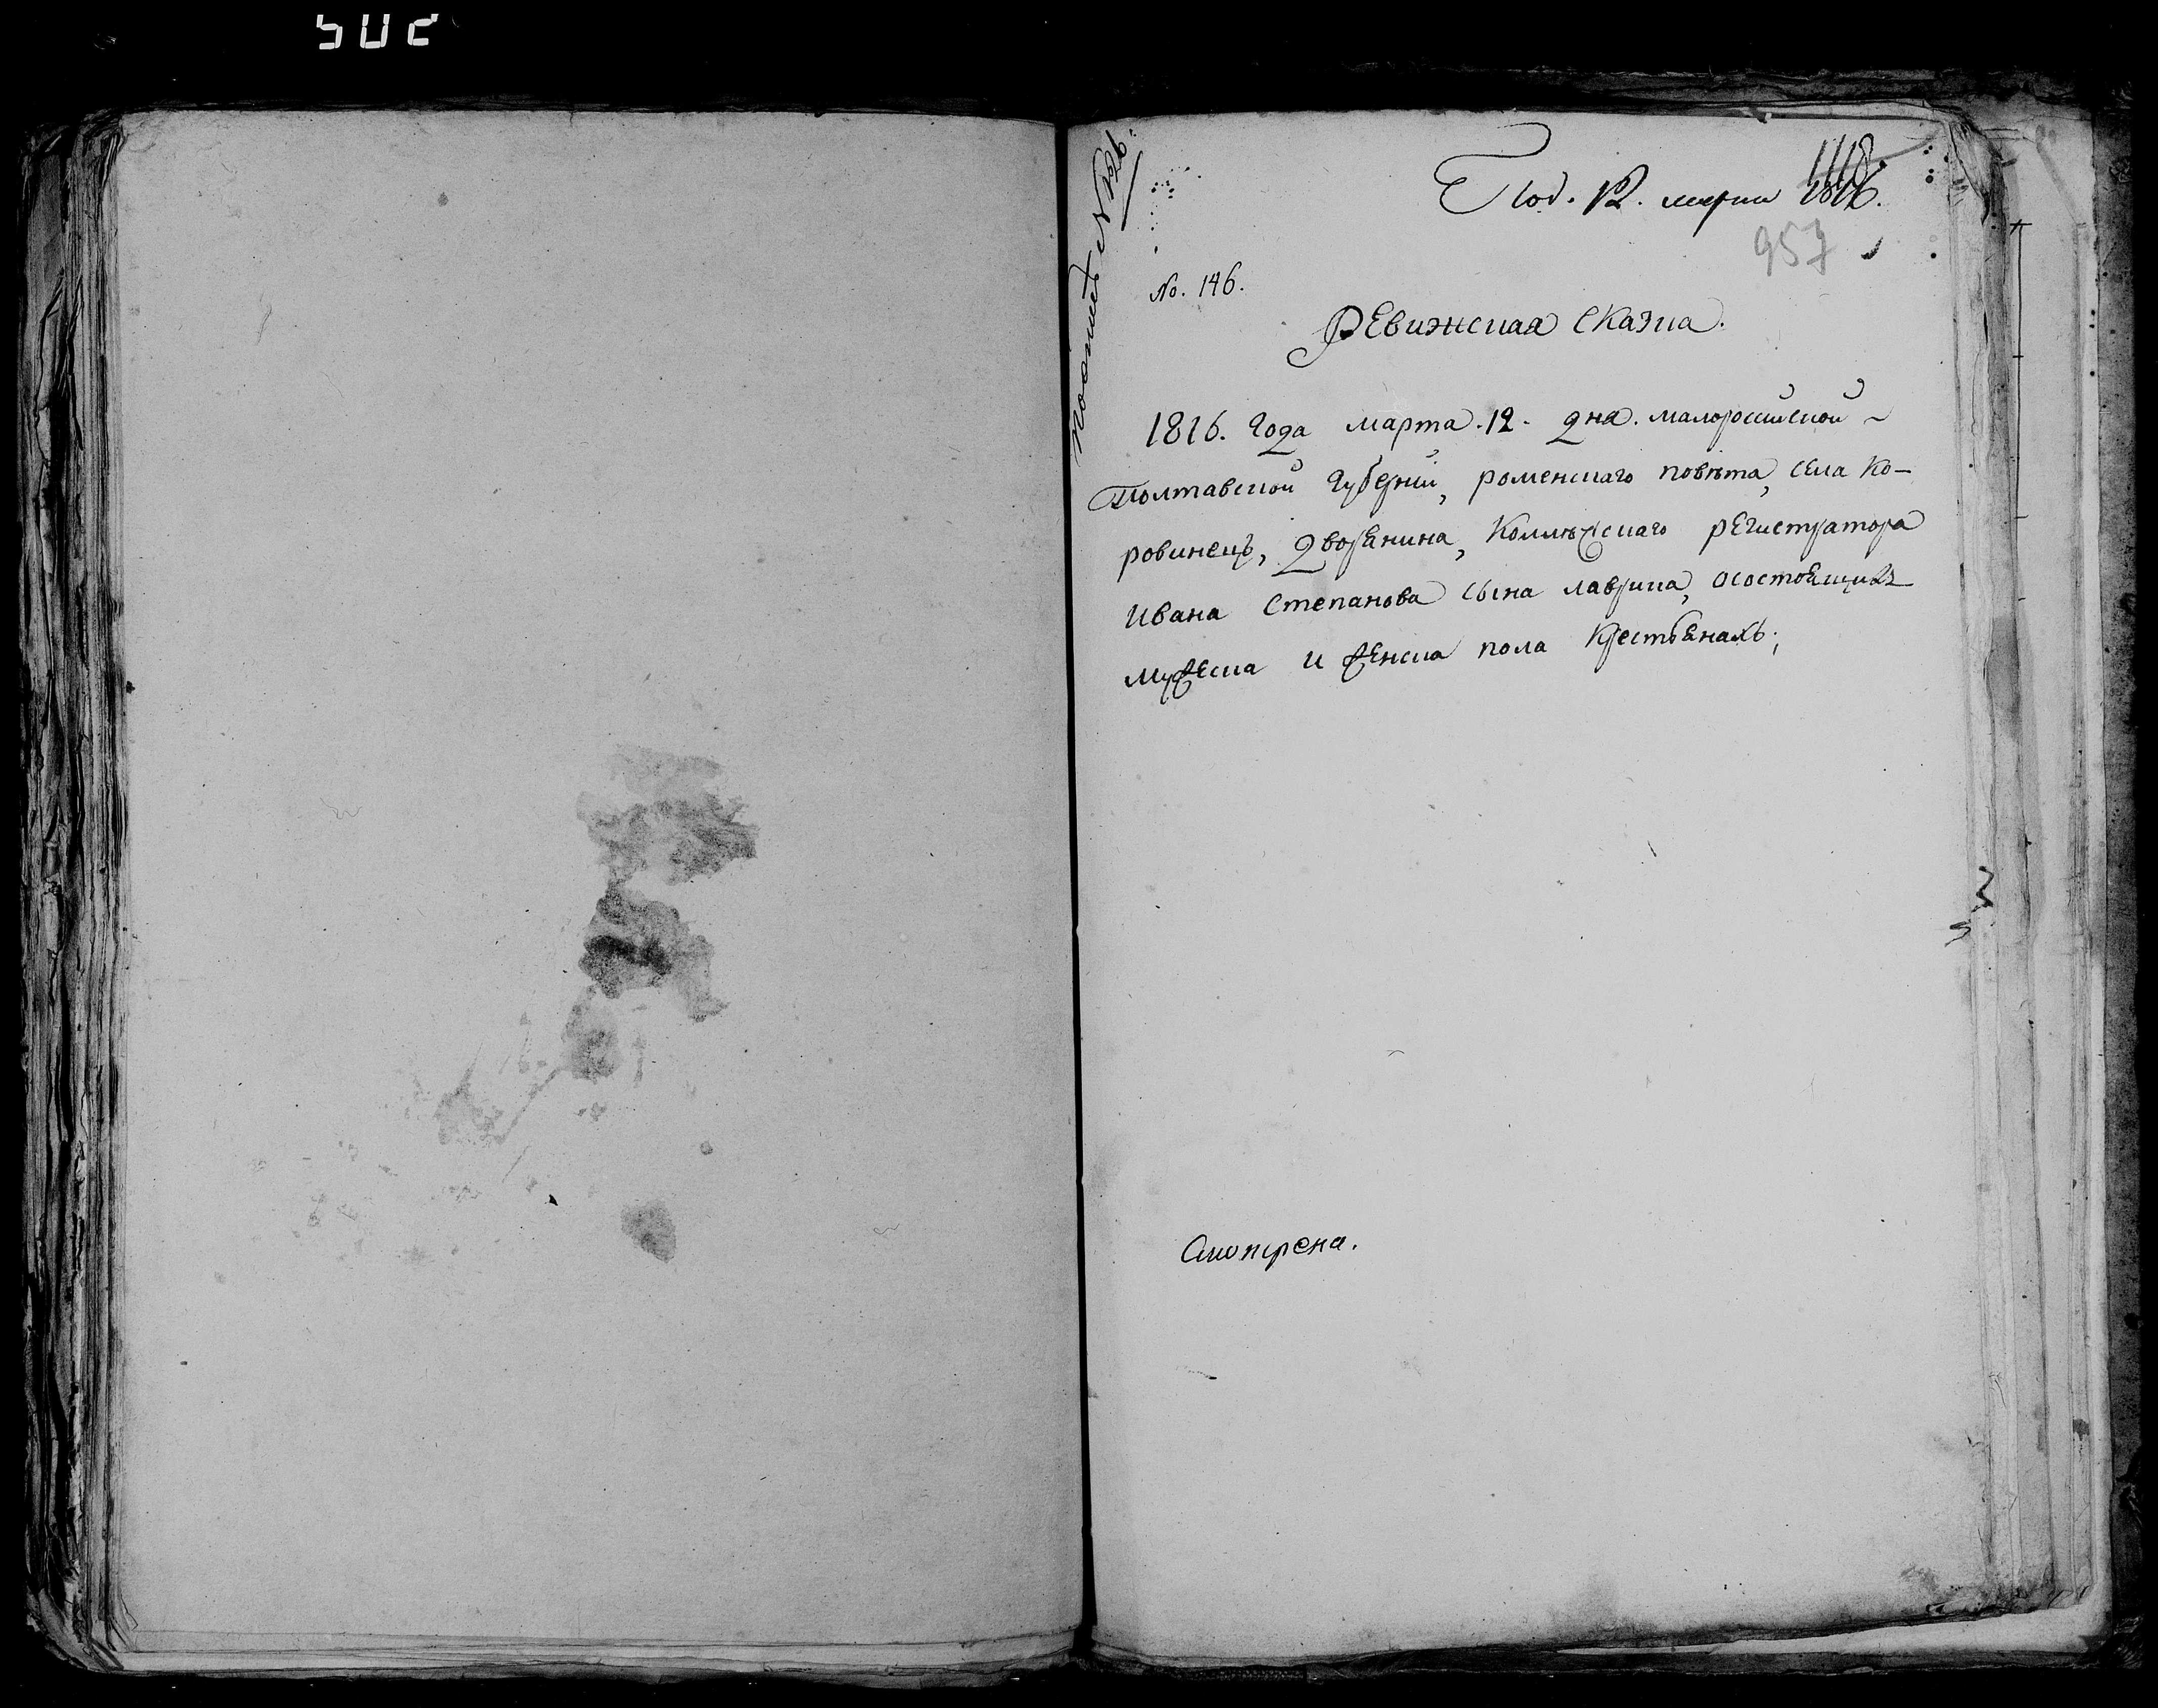 502
1118.
Под. 12. марта 1816.
957
No. 146.
Ревижская сказка.
1816. Года марта. 12. дня. малоросийской
Полтавской Губернии, роменскаго повѣта, села Ко-
ровинецъ, Дворянина, Коллѣжскаго регистратора
Ивана Степанова сына лаврика, осостоящихъ
мужеска и женска пола Крестьянахъ;
Смотрена.